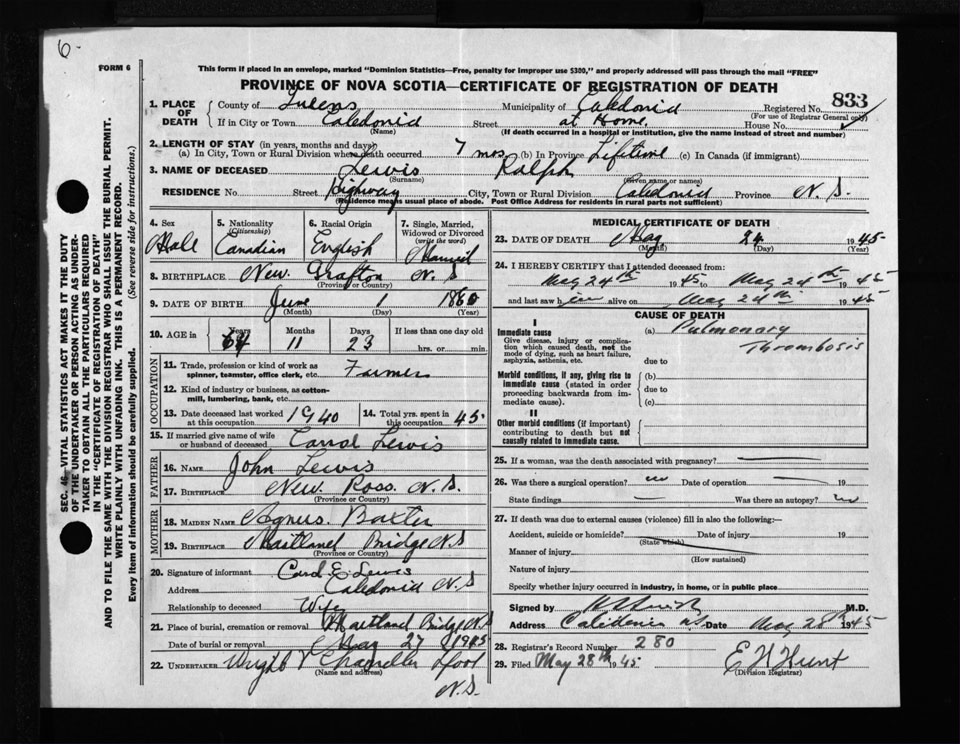 6-
FORM 6
This form if placed in an envelope, marked "Dominion Statistics—Free, penalty for improper use $300," and properly addressed will pass through the mail "FREE"
PROVINCE OF NOVA SCOTIA—CERTIFICATE OF REGISTRATION OF DEATH
833
1. PLACE OF DEATH County of Queens Municipality of Caledonia Registered No.
(For use of Registrar General only)
If in City or Town Caledonia Street at Home. House No.
(Name) (If death occurred in a hospital or institution, give the name instead of street and number)
2. LENGTH OF STAY (in years, months and days)
(a) In City, Town or Rural Division where death occurred 7 mos (b) In Province Lifetime (c) In Canada (if immigrant)
3. NAME OF DECEASED Lewis Ralph
(Surname) (Given name or names)
RESIDENCE No. Street Highway City, Town or Rural Division Caledonia Province N.S.
(Residence means usual place of abode. Post Office Address for residents in rural parts not sufficient)
4. Sex 5. Nationality (Citizenship) 6. Racial Origin 7. Single, Married, Widowed or Divorced (write the word)
Male Canadian English Married
8. BIRTHPLACE New Grafton N.S
(Province or Country)
9. DATE OF BIRTH June 1 1860
(Month) (Day) (Year)
10. AGE in Years Months Days If less than one day old
64 11 23 hrs. or min.
OCCUPATION
11. Trade, profession or kind of work as spinner, teamster, office clerk, etc. Farmer
12. Kind of industry or business, as cotton-mill, lumbering, bank, etc.
13. Date deceased last worked at this occupation 1940 14. Total yrs. spent in this occupation 45
15. If married give name of wife or husband of deceased Carrol Lewis
FATHER
16. NAME John Lewis
17. BIRTHPLACE New Ross. N.S.
(Province or Country)
MOTHER
18. MAIDEN NAME Agnus. Baxter
19. BIRTHPLACE Maitland Bridge N.S
(Province or Country)
20. Signature of informant Carol E. Lewis
Address Caledonia N.S
Relationship to deceased Wife
21. Place of burial, cremation or removal Maitland Bridge N.S
Date of burial or removal May 27 1945
22. UNDERTAKER Wright Chandler
(Name and address)
N.S.
MEDICAL CERTIFICATE OF DEATH
23. DATE OF DEATH May 24 1945
(Month) (Day) (Year)
24. I HEREBY CERTIFY that I attended deceased from:
May 24th 1945 to May 24th 1945
and last saw him alive on May 24th 1945
CAUSE OF DEATH
I
Immediate cause (a) Pulmonary
Give disease, injury or complication which caused death, not the mode of dying, such as heart failure, asphyxia, asthenia, etc. Thrombosis
due to
Morbid conditions, if any, giving rise to immediate cause (stated in order proceeding backwards from immediate cause). (b)
due to
(c)
II
Other morbid conditions (if important) contributing to death but not causally related to immediate cause.
25. If a woman, was the death associated with pregnancy?
26. Was there a surgical operation? no Date of operation 19
State findings Was there an autopsy? no
27. If death was due to external causes (violence) fill in also the following:—
Accident, suicide or homicide? Date of injury 19
(State which)
Manner of injury
(How sustained)
Nature of injury
Specify whether injury occurred in industry, in home, or in public place
Signed by M.D.
Address Caledonia N.S Date May 28th 1945
28. Registrar's Record Number 280
29. Filed May 28th 1945 E H Hunt
(Division Registrar)
SEC. 46—VITAL STATISTICS ACT MAKES IT THE DUTY OF THE UNDERTAKER OR PERSON ACTING AS UNDERTAKER TO OBTAIN ALL THE PARTICULARS REQUIRED IN THE "CERTIFICATE OF REGISTRATION OF DEATH"
AND TO FILE THE SAME WITH THE DIVISION REGISTRAR WHO SHALL ISSUE THE BURIAL PERMIT.
WRITE PLAINLY WITH UNFADING INK. THIS IS A PERMANENT RECORD.
Every item of information should be carefully supplied. (See reverse side for instructions.)